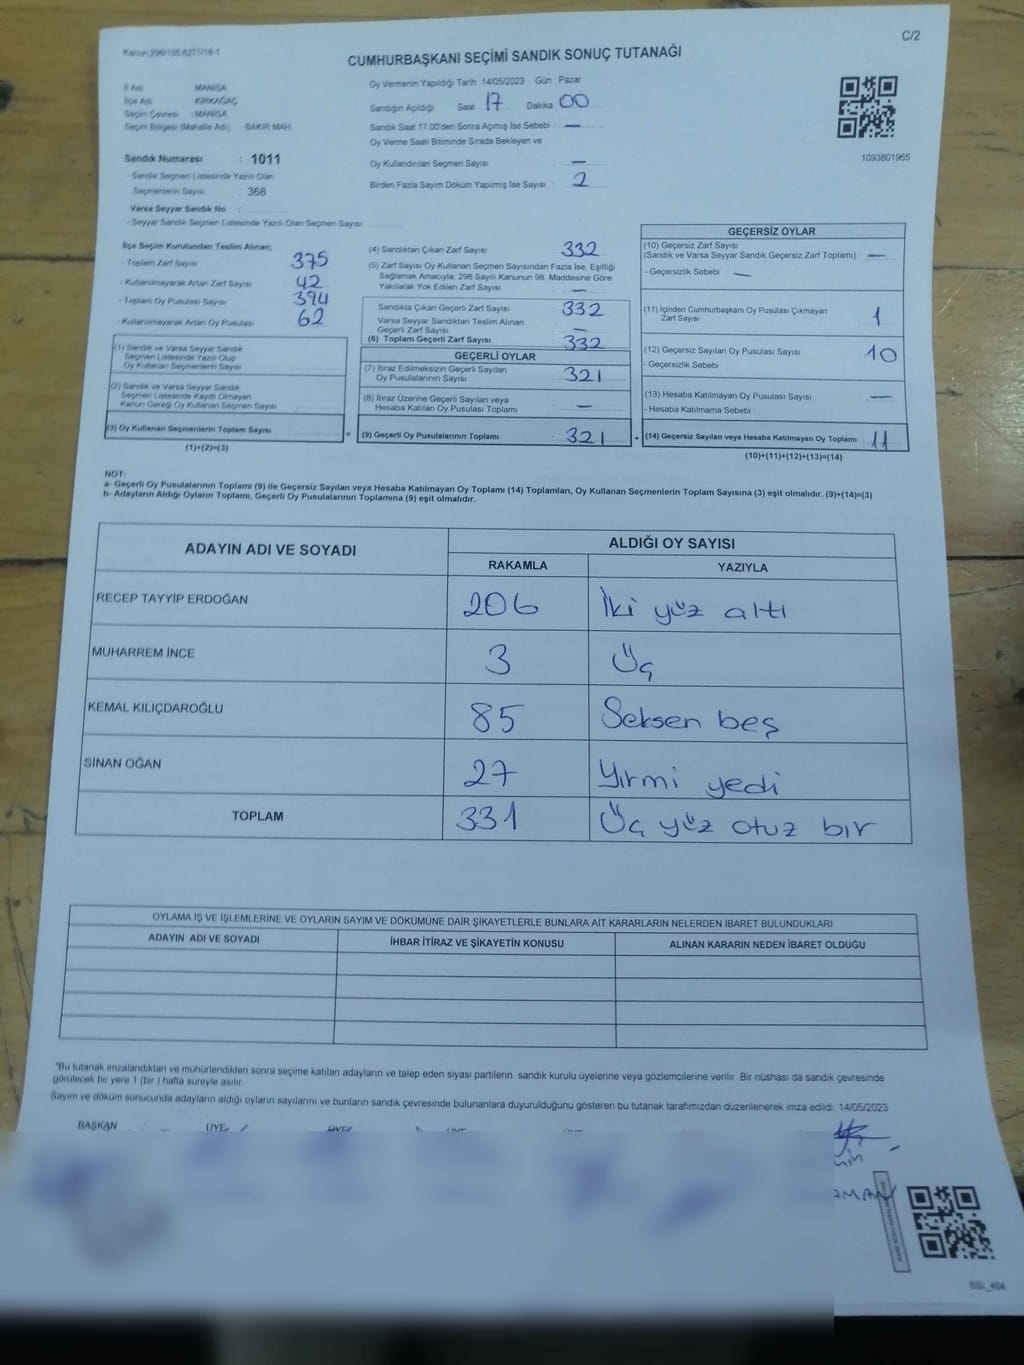 Kanun:298/105-6271/18-1
C/2
CUMHURBAŞKANI SEÇİMİ SANDIK SONUÇ TUTANAĞI
İl Adı MANİSA
İlçe Adı KIRKAĞAÇ
Seçim Çevresi : MANİSA
Seçim Bölgesi (Mahalle Adı) BAKIR MAH.
Sandık Numarası : 1011
- Sandık Seçmen Listesinde Yazılı Olan
Seçmenlerin Sayısı : 368
Varsa Seyyar Sandık No :
- Seyyar Sandık Seçmen Listesinde Yazılı Olan Seçmen Sayısı :
Oy Vermenin Yapıldığı Tarih :14/05/2023 Gün Pazar
Sandığın Açıldığı Saat 17 Dakika 00
Sandık Saat 17:00'den Sonra Açımış İse Sebebi : —
Oy Verme Saati Bitiminde Sırada Bekleyen ve
Oy Kullandırılan Seçmen Sayısı : —
Birden Fazla Sayım Döküm Yapılmış İse Sayısı : 2
1093801965
İlçe Seçim Kurulundan Teslim Alınan;
- Toplam Zarf Sayısı : 375
- Kullanılmayarak Artan Zarf Sayısı : 42
- Toplam Oy Pusulası Sayısı : 394
- Kullanılmayarak Artan Oy Pusulası : 62
(1) Sandık ve Varsa Seyyar Sandık
Seçmen Listesinde Yazılı Olup
Oy Kullanan Seçmenlerin Sayısı :
(2) Sandık ve Varsa Seyyar Sandık
Seçmen Listesinde Kayıtlı Olmayan
Kanun Gereği Oy Kullanan Seçmen Sayısı :
(3) Oy Kullanan Seçmenlerin Toplam Sayısı :
(1)+(2)=(3)
(4) Sandıktan Çıkan Zarf Sayısı : 332
(5) Zarf Sayısı Oy Kullanan Seçmen Sayısından Fazla İse, Eşitliği
Sağlamak Amacıyla, 298 Sayılı Kanunun 98. Maddesine Göre
Yakılarak Yok Edilen Zarf Sayısı : —
Sandıkta Çıkan Geçerli Zarf Sayısı : 332
Varsa Seyyar Sandıktan Teslim Alınan
Geçerli Zarf Sayısı : —
(6) Toplam Geçerli Zarf Sayısı : 332
GEÇERLİ OYLAR
(7) İtiraz Edilmeksizin Geçerli Sayılan
Oy Pusulalarının Sayısı : 321
(8) İtiraz Üzerine Geçerli Sayılan veya
Hesaba Katılan Oy Pusulası Toplamı : —
= (9) Geçerli Oy Pusulalarının Toplamı : 321
GEÇERSİZ OYLAR
(10) Geçersiz Zarf Sayısı
(Sandık ve Varsa Seyyar Sandık Geçersiz Zarf Toplamı) : —
- Geçersizlik Sebebi : —
(11) İçinden Cumhurbaşkanı Oy Pusulası Çıkmayan
Zarf Sayısı : 1
(12) Geçersiz Sayılan Oy Pusulası Sayısı : 10
- Geçersizlik Sebebi :
(13) Hesaba Katılmayan Oy Pusulası Sayısı : —
- Hesaba Katılmama Sebebi :
+ (14) Geçersiz Sayılan veya Hesaba Katılmayan Oy Toplamı : 11
(10)+(11)+(12)+(13)=(14)
NOT:
a- Geçerli Oy Pusulalarının Toplamı (9) ile Geçersiz Sayılan veya Hesaba Katılmayan Oy Toplamı (14) Toplamları, Oy Kullanan Seçmenlerin Toplam Sayısına (3) eşit olmalıdır. (9)+(14)=(3)
b- Adayların Aldığı Oyların Toplamı, Geçerli Oy Pusulalarının Toplamına (9) eşit olmalıdır.
ADAYIN ADI VE SOYADI
ALDIĞI OY SAYISI
RAKAMLA YAZIYLA
RECEP TAYYİP ERDOĞAN 206 İki yüz altı
MUHARREM İNCE 3 Üç
KEMAL KILIÇDAROĞLU 85 Seksen beş
SİNAN OĞAN 27 Yırmi yedi
TOPLAM 331 Üç yüz otuz bır
OYLAMA İŞ VE İŞLEMLERİNE VE OYLARIN SAYIM VE DÖKÜMÜNE DAİR ŞİKAYETLERLE BUNLARA AİT KARARLARIN NELERDEN İBARET BULUNDUKLARI
ADAYIN ADI VE SOYADI İHBAR İTİRAZ VE ŞİKAYETİN KONUSU ALINAN KARARIN NEDEN İBARET OLDUĞU
*Bu tutanak imzalandıktan ve mühürlendikten sonra seçime katılan adayların ve talep eden siyasi partilerin sandık kurulu üyelerine veya gözlemcilerine verilir. Bir nüshası da sandık çevresinde
görülecek bir yere 1 (bir) hafta süreyle asılır.
Sayım ve döküm sonucunda adayların aldığı oyların sayılarını ve bunların sandık çevresinde bulunanlara duyurulduğunu gösteren bu tutanak tarafımızdan düzenlenerek imza edildi. 14/05/2023
BAŞKAN ÜYE